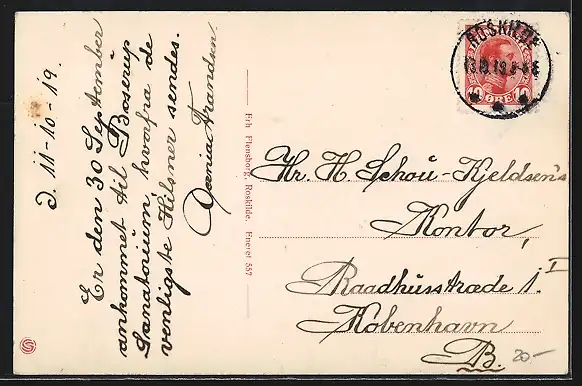 D. 11-10-19.
Er den 30 September
ankommet til Boserup
Sanatorium, hvorfra de
venligste Hilsner sendes.
Erh Flensborg, Roskilde. Eneret 557
ROSKILDE
10 ØRE 10
Hr. H. Schou-Kjeldsen's
Kontor,
Raadhusstræde 1. I
København
B.
20-